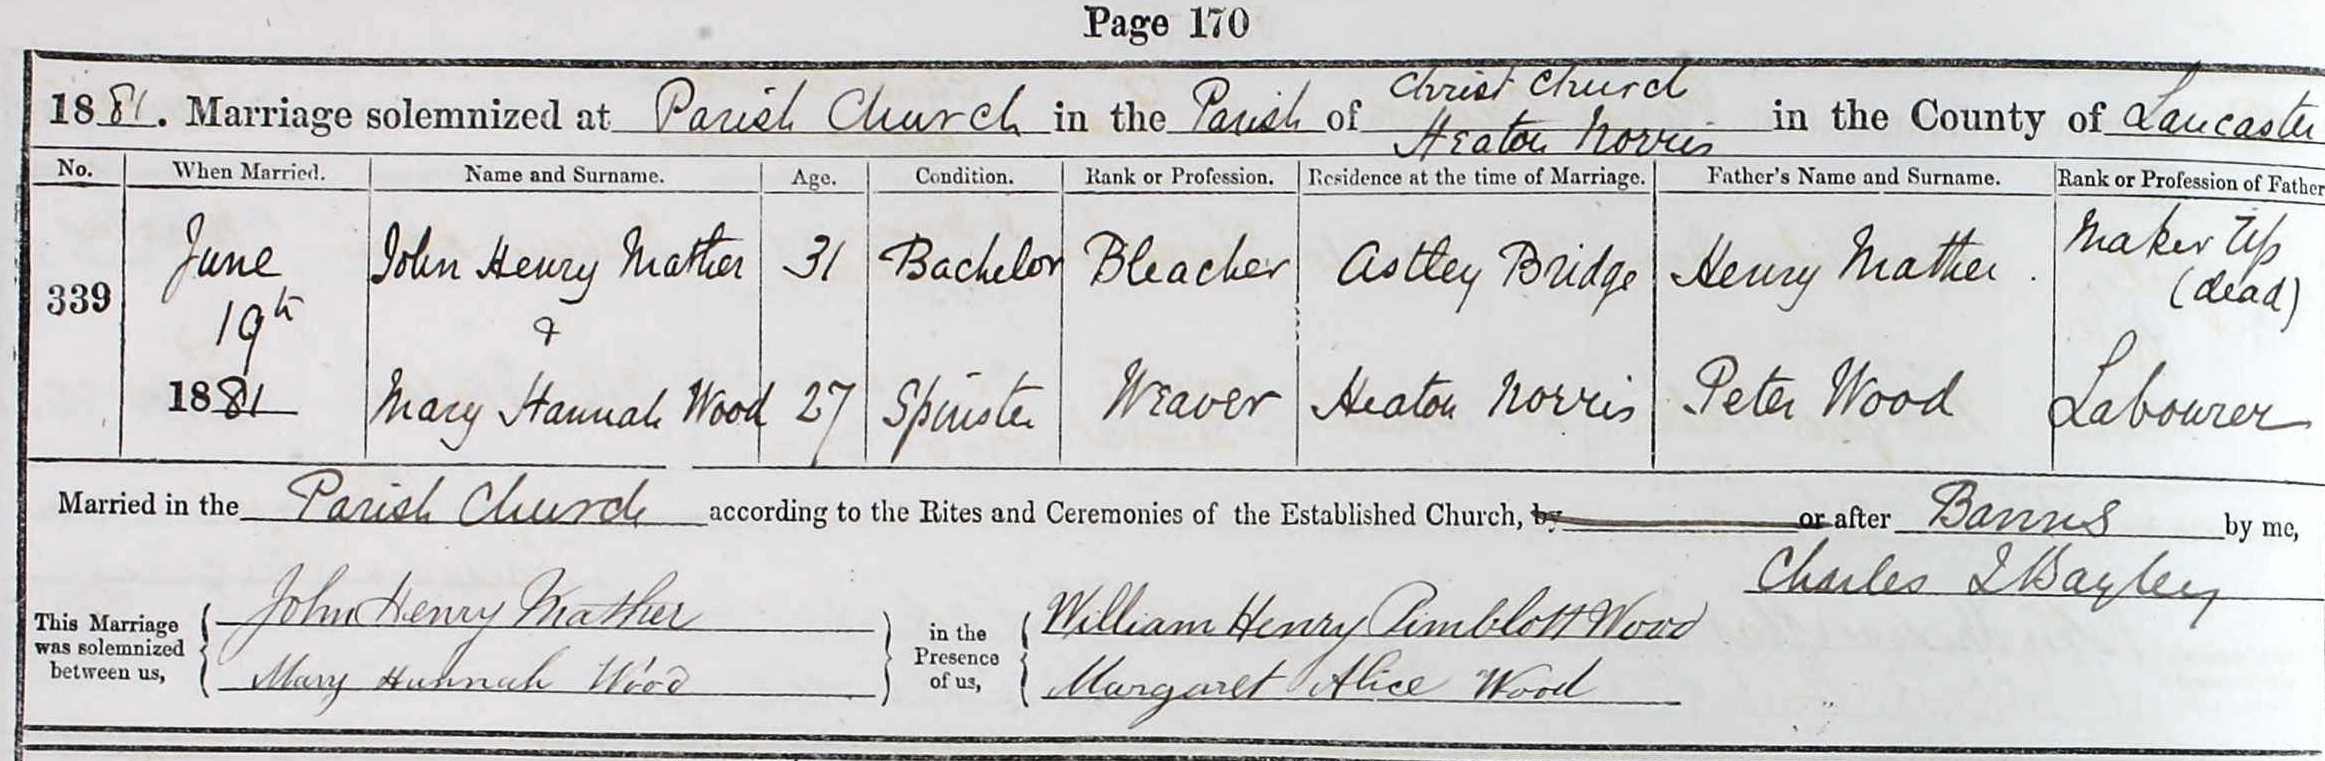 Page 170
1881. Marriage solemnized at Parish Church in the Parish of Christ Church Heaton Norris in the County of Lancaster
No. When Married. Name and Surname. Age. Condition. Rank or Profession. Residence at the time of Marriage. Father's Name and Surname. Rank or Profession of Father
339 June 19th 1881 John Henry Mather 31 Bachelor Bleacher Astley Bridge Henry Mather. Maker Up (dead)
&
Mary Hannah Wood 27 Spinster Weaver Heaton Norris Peter Wood Labourer
Married in the Parish Church according to the Rites and Ceremonies of the Established Church, by or after Banns by me,
Charles I Bayley
This Marriage was solemnized between us, John Henry Mather Mary Hannah Wood in the Presence of us, William Henry Pimblott Wood Margaret Alice Wood